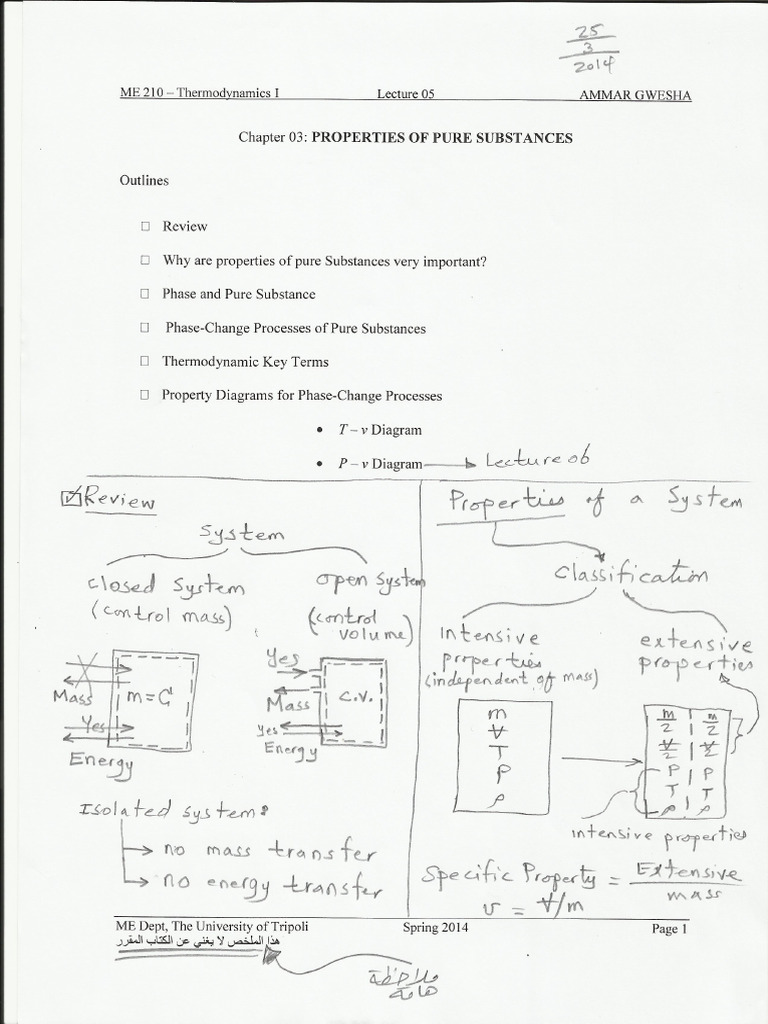 25
3
2014
ME 210 – Thermodynamics I Lecture 05 AMMAR GWESHA
Chapter 03: PROPERTIES OF PURE SUBSTANCES
Outlines
Review
Why are properties of pure Substances very important?
Phase and Pure Substance
Phase-Change Processes of Pure Substances
Thermodynamic Key Terms
Property Diagrams for Phase-Change Processes
• T – v Diagram
• P – v Diagram Lecture 06
Review
System
closed system
(control mass)
open system
(control
volume)
Mass
Yes
Energy
m = C
Yes
Mass
Yes
Energy
C.V.
Isolated system:
no mass transfer
no energy transfer
Properties of a System
Classification
intensive
properties
(independent of mass)
extensive
properties
m
V
T
P
ρ
m/2 m/2
V/2 V/2
P P
T T
ρ ρ
intensive properties
Specific Property = Extensive / mass
v = V/m
ME Dept, The University of Tripoli Spring 2014 Page 1
هذا الملخص لا يغني عن الكتاب المقرر
ملاحظة
هامة